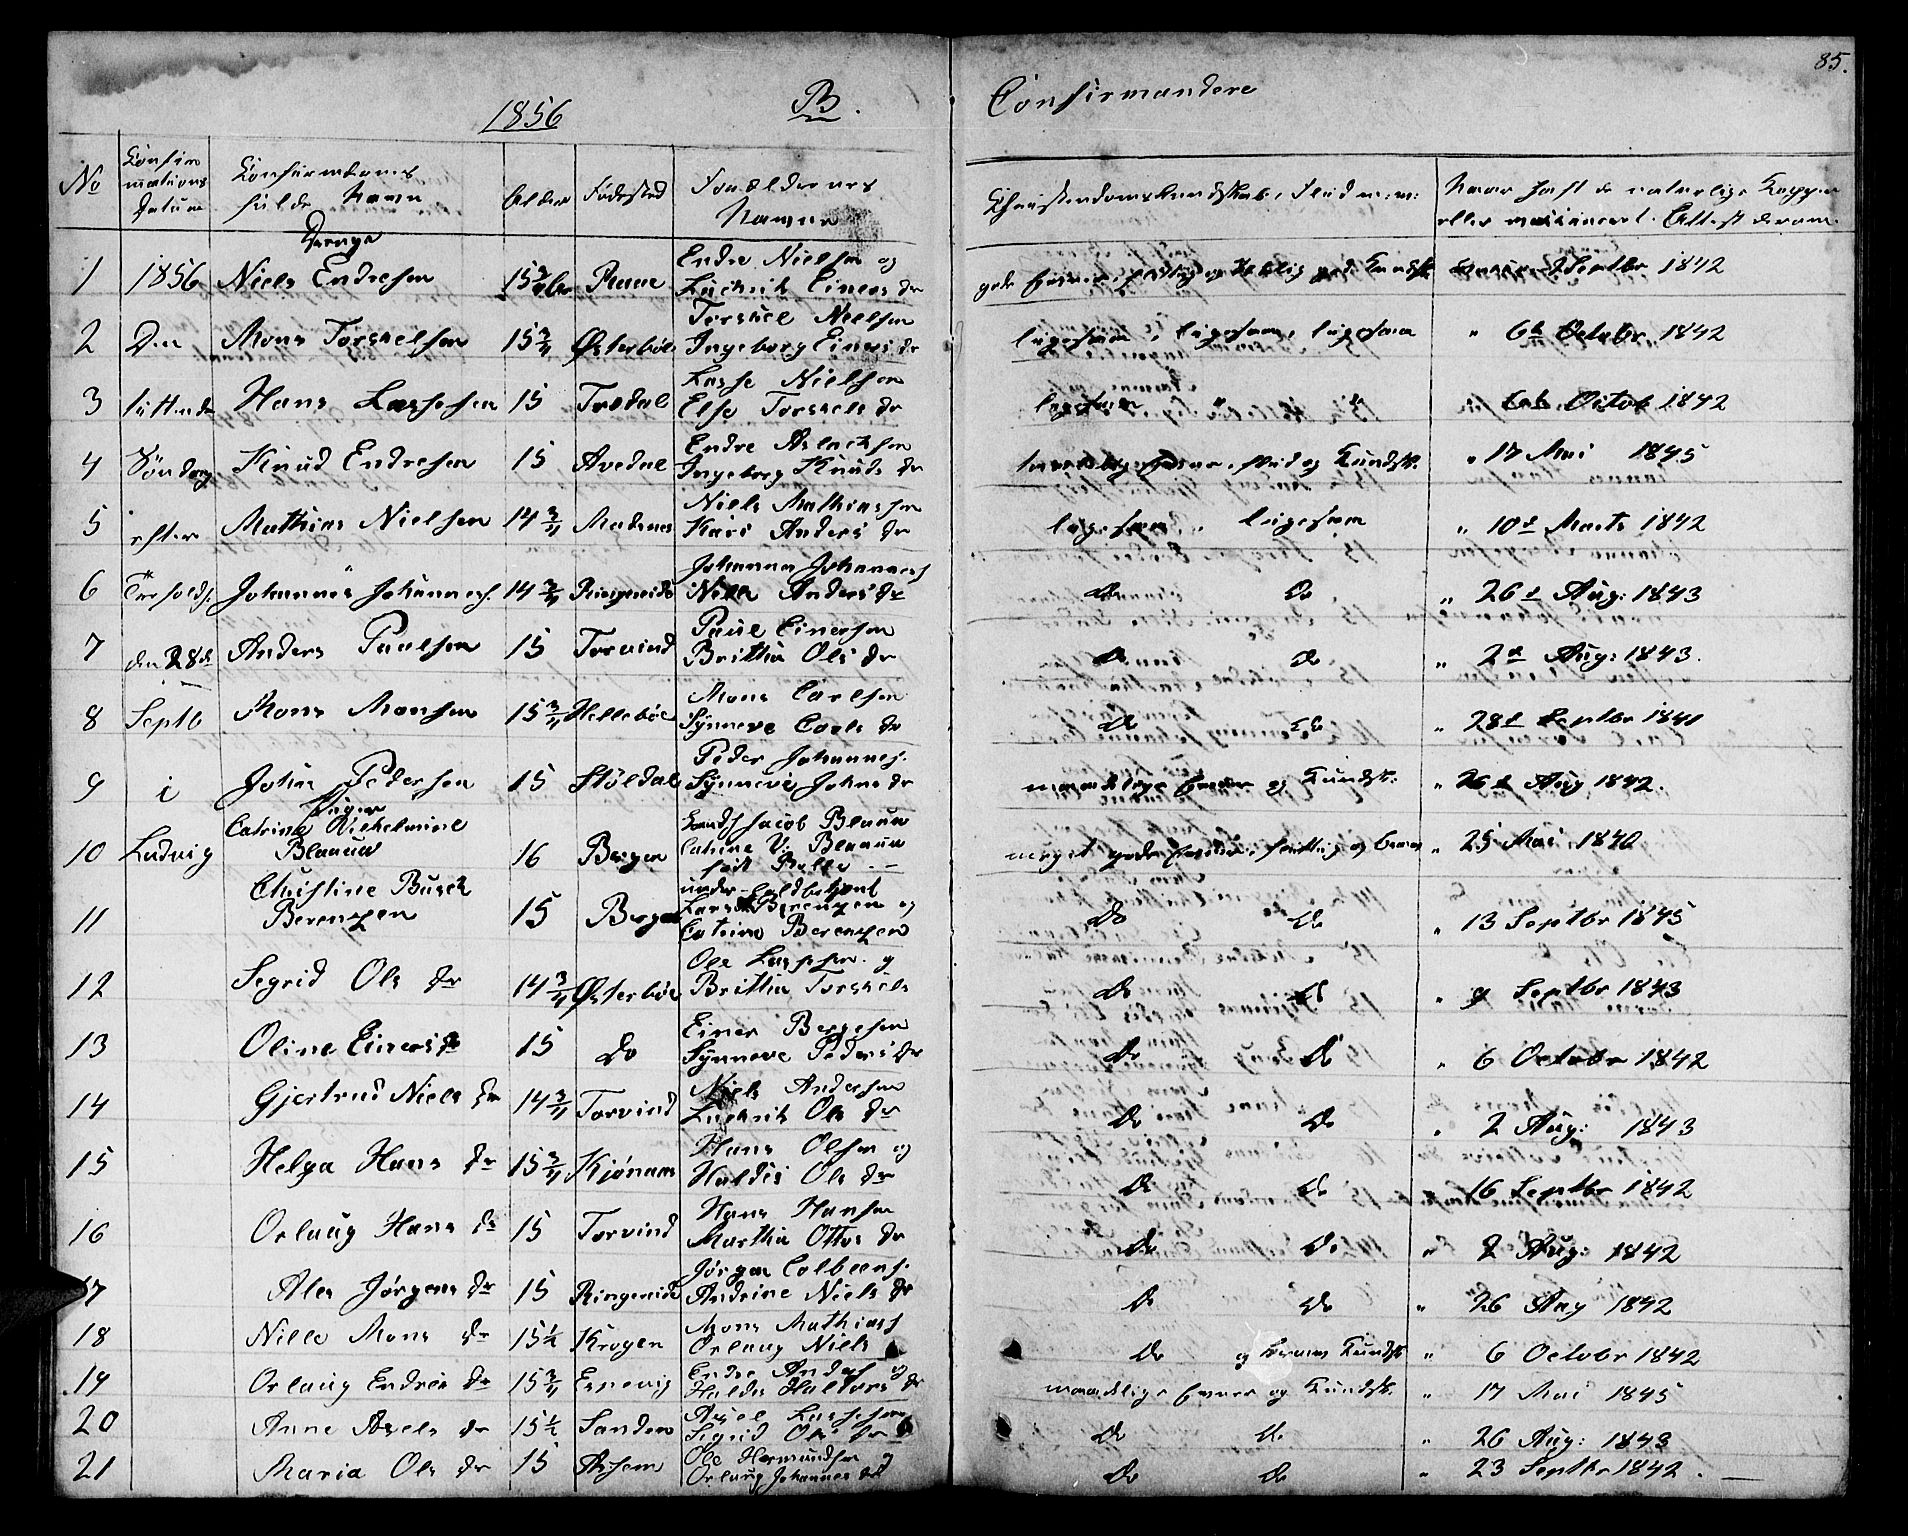 85.
1856 B. Confirmandere
No Confirmations Datum Confirmandernes fulde Navn Alder Fødested Forældrenes Navne Christendomskundskab, Flid m: m: Naar havt de naturlige Kopper eller vaccineret. Attest derom.
Drenge
1 1856 Niels Endresen 15 Endre Nielsen og
gode Evner 2 Septbr 1842
2 Den Mons Torskelsen 15 3/4 Østerbøe Torskel Nielsen
Ingeborg Einers dr
ligesaa, ligesaa, ligesaa " 6te Octobr 1842
3 Hans Lassesen 15 Lasse Nielsen
Else Torskels dr
ligesaa " " 6te Octob 1842
4 Søndag Knud Endresen 15 Avedal Endre Aslachsen
Ingeborg Knuds dr
Evner, Flid og Kundsk. " 17 Mai 1845
5 efter Mathias Nielsen 14 3/4 Madsnes Niels Mathiassen
Kari Anders dr
ligesaa, ligesaa " 10d Marts 1842
6 Johannes Johannes. 14 3/4 Ringereide Johannes Johanness
Nille Anders dr
Do Do " 26d Aug: 1843
7 den 28de Anders Paulsen 15 Torvind Paul Einersen
Britha Ols dr
Do Do " 2d Aug: 1843.
8 Septb Mons Monsen 15 3/4 Hellebøe Mons Carlsen
Synneve Carls dr
Do Do " 28d Septbr 1841
9 i John Pedersen 15 Støldal Peder Johannes.
Synneve Johns dr
maadelige Evner og Kundsk: " 26d Aug 1842.
Piger
10 Ladvig Catrine Wilhelmine
Blaauw 16 Bergen Jacob Blaauw
Catrine V. Blaauw
meget gode Evner, " 25 Mai 1840
11 Christine Busch
Berentzen 15 Bergen Lars Berentzen og
Catrine Berentzen
Do Do " 13 Septbr 1845
12 Segrid Ols dr 14 3/4 Østerbøe Ole Lassesen og
Britha Torskels
Do Do " 9 Septbr 1843
13 Oline Einers dr 15 Do Einer Bergesen
Synneve Peders dr
Do Do " 6 Octobr 1842
14 Gjertrud Niels dr 14 3/4 Torvind Niels Andersen
Ols dr
Do Do " 2 Aug: 1843
15 Helga Hans dr 15 3/4 Kjønaas Hans Olsen og
Haldis Ols dr
Do Do " 16 Septbr 1842
16 Orlaug Hans dr 15 Torvind Hans Hansen
Martha Ottos dr
Do Do " 2 Aug: 1842
17 Ales Jørgens dr 15 Ringereide Jørgen Colbeens.
Andrine Niels dr
Do Do " 26 Aug 1842
18 Nille Mons dr 15 1/2 Krogen Mons Mathiass
Orlaug Niels
Do og Evner Kundsk " 6 Octobr 1842
19 Orlaug Endres dr 15 3/4 Esnevig Endre Anders og
Haldis Haldors dr
maadelige Evner og Kundsk. " 17 Mai 1845
20 Anne Axels dr 15 1/2 Sanden Axel Lassesen
Segrid Ols dr
Do Do " 26 Aug: 1843
21 Maria Ols dr 15 Ole Hermundsen og
Orlaug Johannes dr
Do Do " 23 Septbr 1842.